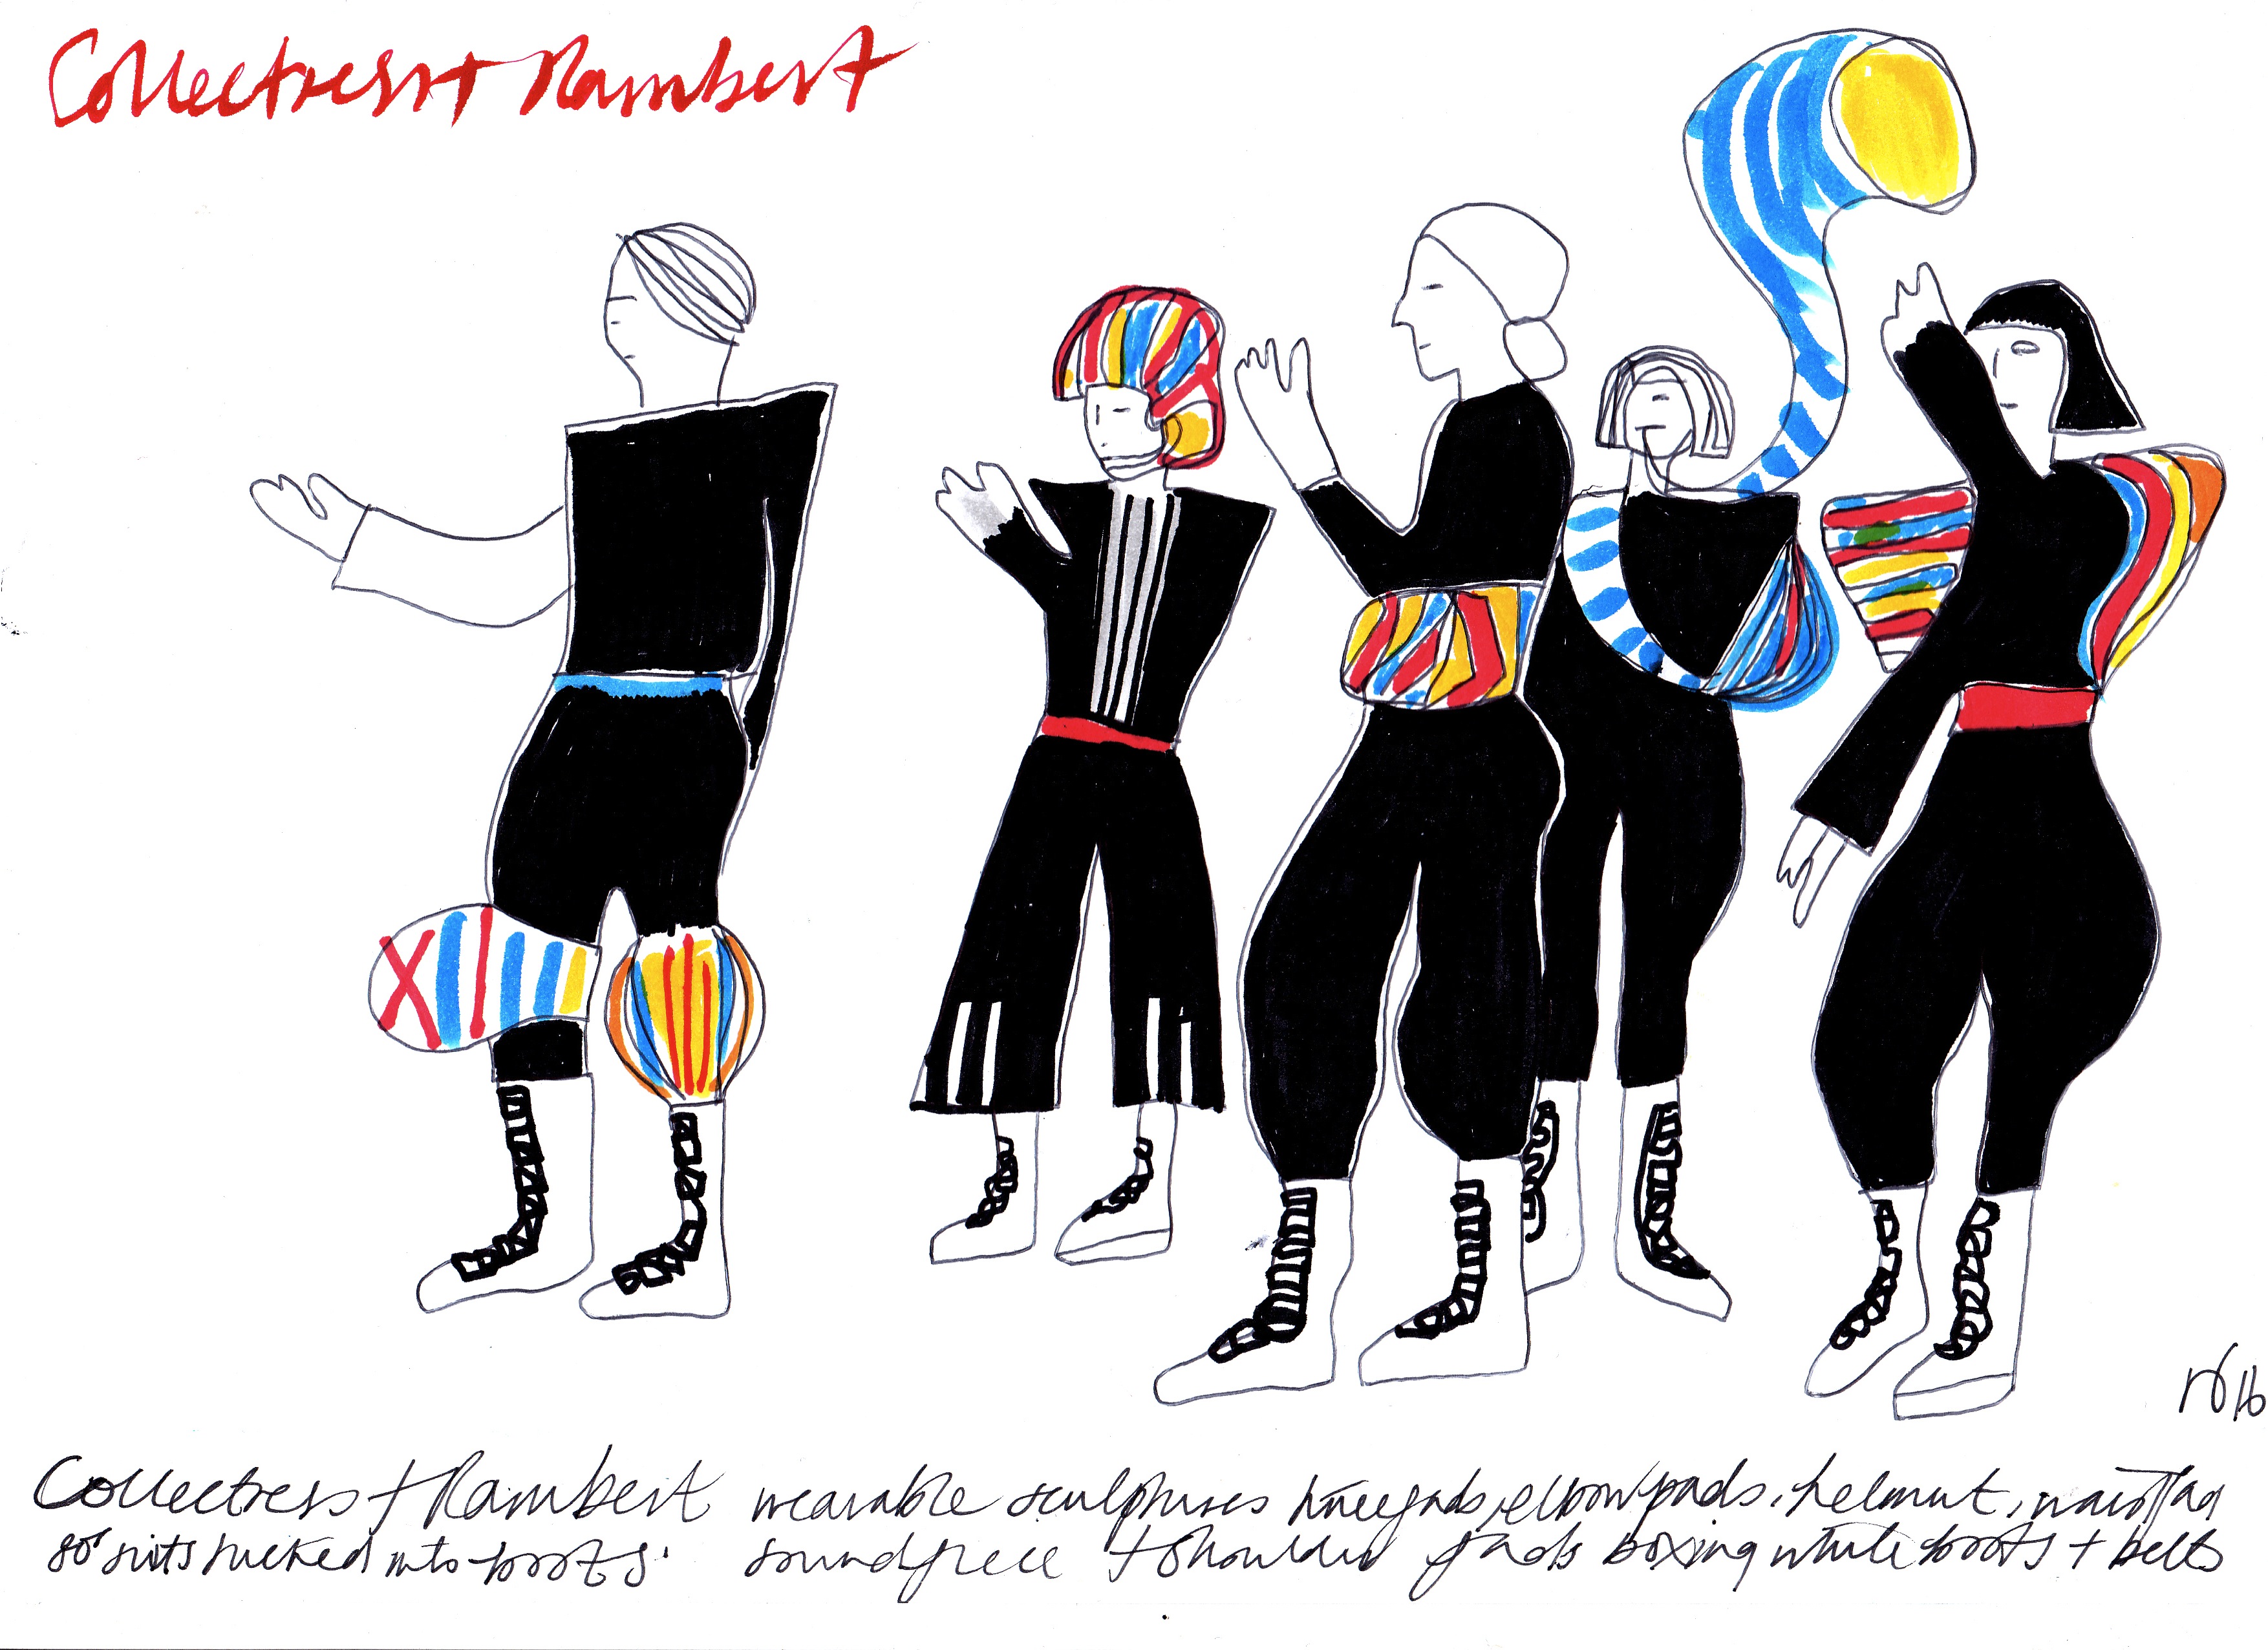 Collectress + Rambert
Collectress + Rambert wearable sculptures kneepads, elbowpads, helmut,
80's suits tucked into boots. soundpiece + shoulder pads boxing white boots + belts